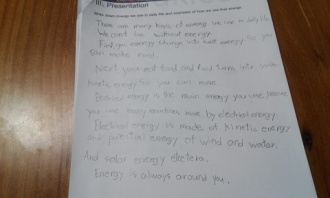 III. Presentation
Write down energy we use in daily life and examples of how we use energy.
There are many kinds of energy we use in daily life.
We can't be without energy.
First, energy change into heat energy for you
can make food.
Next your eat food and food turn into
kinetic energy for you can move.
electrical energy is the main energy you use because
you use many machines move by electrical energy.
Electrical energy is made of kinetic energy
and potential energy of wind and water.
And solar energy etcetera.
Energy is always around you.